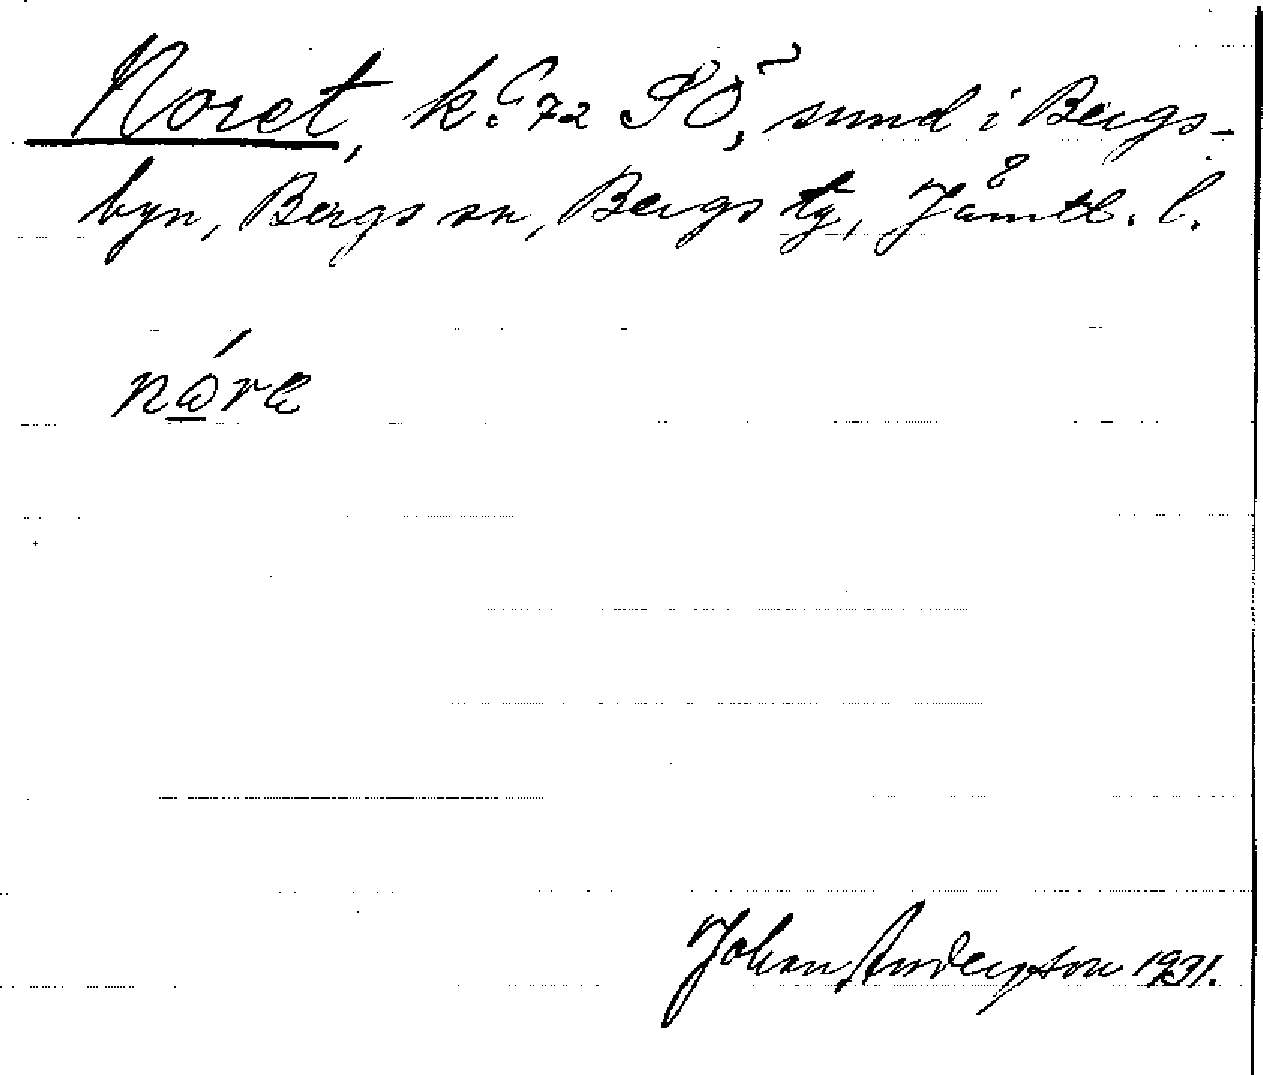 Noret, k. C 72 SÖ, sund i Bergs-
byn, Bergs sn, Bergs tg, Jämtl. l.
nǻ̱ra
Johan Andersson 1931.